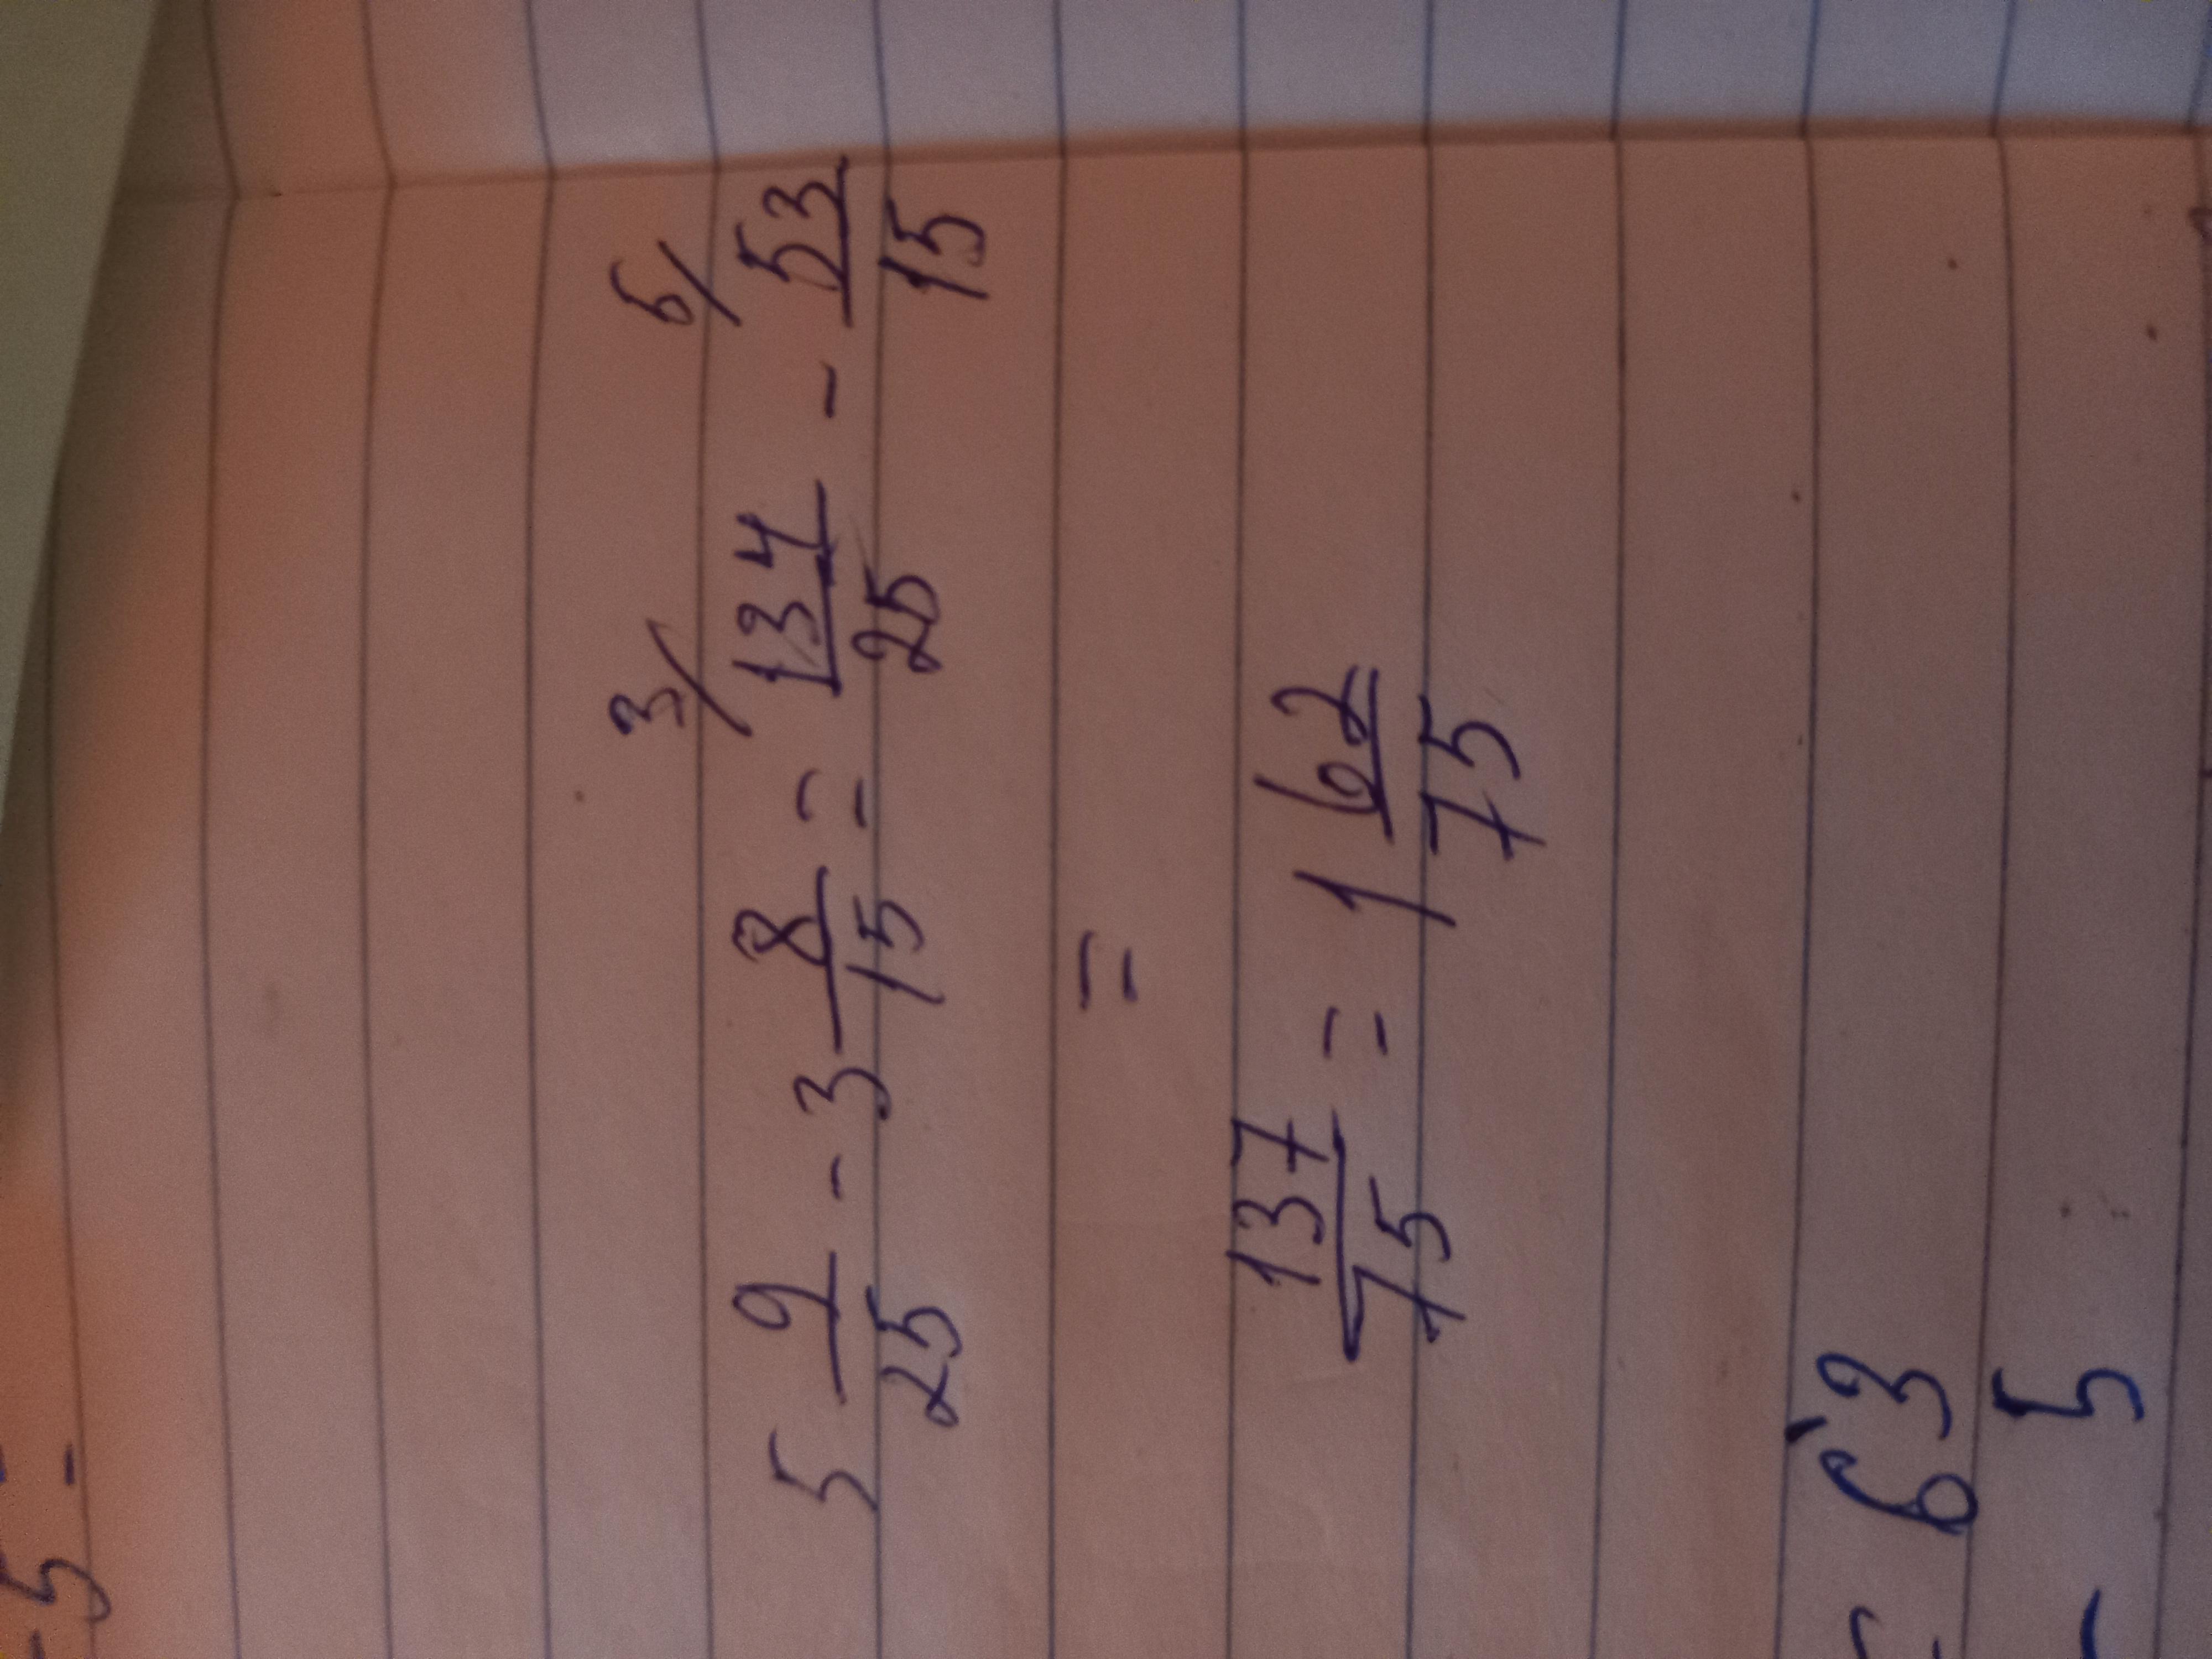 5 -
3/ 5/
5 9/25 - 3 8/15 = 134/25 - 53/15
=
137/75 = 1 62/75
= 63
- 5